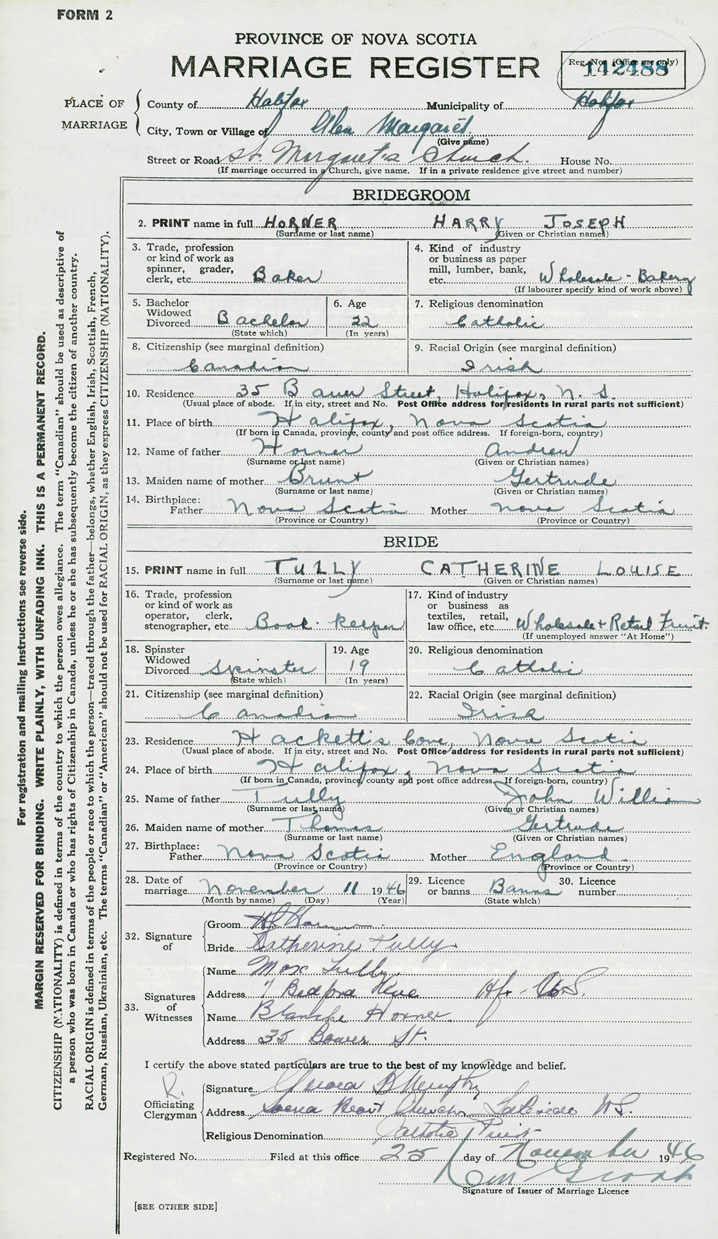 FORM 2
PROVINCE OF NOVA SCOTIA
MARRIAGE REGISTER
Reg. No. (Office use only)
142488
PLACE OF MARRIAGE
County of Halifax Municipality of Halifax
City, Town or Village of Glen Margaret
(Give name)
Street or Road St. Margaret's Church. House No.
(If marriage occurred in a Church, give name. If in a private residence give street and number)
BRIDEGROOM
2. PRINT name in full HORNER HARRY JOSEPH
(Surname or last name) (Given or Christian names)
3. Trade, profession or kind of work as spinner, grader, clerk, etc. Baker
4. Kind of industry or business as paper mill, lumber, bank, etc. Wholesale - Bakery
(If labourer specify kind of work above)
5. Bachelor Widowed Divorced Bachelor
(State which)
6. Age 22
(In years)
7. Religious denomination
Catholic
8. Citizenship (see marginal definition)
Canadian
9. Racial Origin (see marginal definition)
Irish
10. Residence 35 Bauer Street, Halifax, N. S.
(Usual place of abode. If in city, street and No. Post Office address for residents in rural parts not sufficient)
11. Place of birth Halifax, Nova Scotia
(If born in Canada, province, county and post office address. If foreign-born, country)
12. Name of father Horner Andrew
(Surname or last name) (Given or Christian names)
13. Maiden name of mother Brunt Gertrude
(Surname or last name) (Given or Christian names)
14. Birthplace:
Father Nova Scotia Mother Nova Scotia
(Province or Country) (Province or Country)
BRIDE
15. PRINT name in full TULLY CATHERINE LOUISE
(Surname or last name) (Given or Christian names)
16. Trade, profession or kind of work as operator, clerk, stenographer, etc. Book-keeper
17. Kind of industry or business as textiles, retail, law office, etc. Wholesale + Retail Fruit
(If unemployed answer "At Home")
18. Spinster Widowed Divorced Spinster
(State which)
19. Age 19
(In years)
20. Religious denomination
Catholic
21. Citizenship (see marginal definition)
Canadian
22. Racial Origin (see marginal definition)
Irish
23. Residence Hackett's Cove, Nova Scotia
(Usual place of abode. If in city, street and No. Post Office address for residents in rural parts not sufficient)
24. Place of birth Halifax, Nova Scotia
(If born in Canada, province, county and post office address. If foreign-born, country)
25. Name of father Tully John William
(Surname or last name) (Given or Christian names)
26. Maiden name of mother Thomas Gertrude
(Surname or last name) (Given or Christian names)
27. Birthplace:
Father Nova Scotia Mother England
(Province or Country) (Province or Country)
28. Date of marriage November 11 1946
(Month by name) (Day) (Year)
29. Licence or banns Banns
(State which)
30. Licence number
32. Signature of
Groom
Bride Catherine Tully
33. Signatures of Witnesses
Name Max Tully
Address 7 Bedford Hfx N.S.
Name Blanche Horner
Address 35 St.
I certify the above stated particulars are true to the best of my knowledge and belief.
R.
Officiating Clergyman
Signature Murphy
Address N.S.
Religious Denomination Catholic Priest
Registered No. Filed at this office 25 day of November 1946
Signature of Issuer of Marriage Licence
[SEE OTHER SIDE]
For registration and mailing instructions see reverse side.
MARGIN RESERVED FOR BINDING. WRITE PLAINLY, WITH UNFADING INK. THIS IS A PERMANENT RECORD.
CITIZENSHIP (NATIONALITY) is defined in terms of the country to which the person owes allegiance. The term "Canadian" should be used as descriptive of
a person who was born in Canada or who has rights of Citizenship in Canada, unless he or she has subsequently become the citizen of another country.
RACIAL ORIGIN is defined in terms of the people or race to which the person—traced through the father—belongs, whether English, Irish, Scottish, French,
German, Russian, Ukrainian, etc. The terms "Canadian" or "American" should not be used for RACIAL ORIGIN, as they express CITIZENSHIP (NATIONALITY).